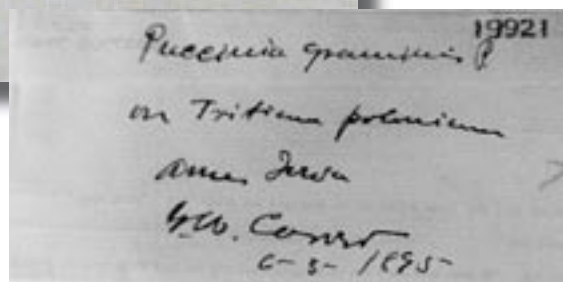 19921
Puccinia graminis P
on Triticum polonicum
Ames Iowa
G.W. Carver
6-5-1895-